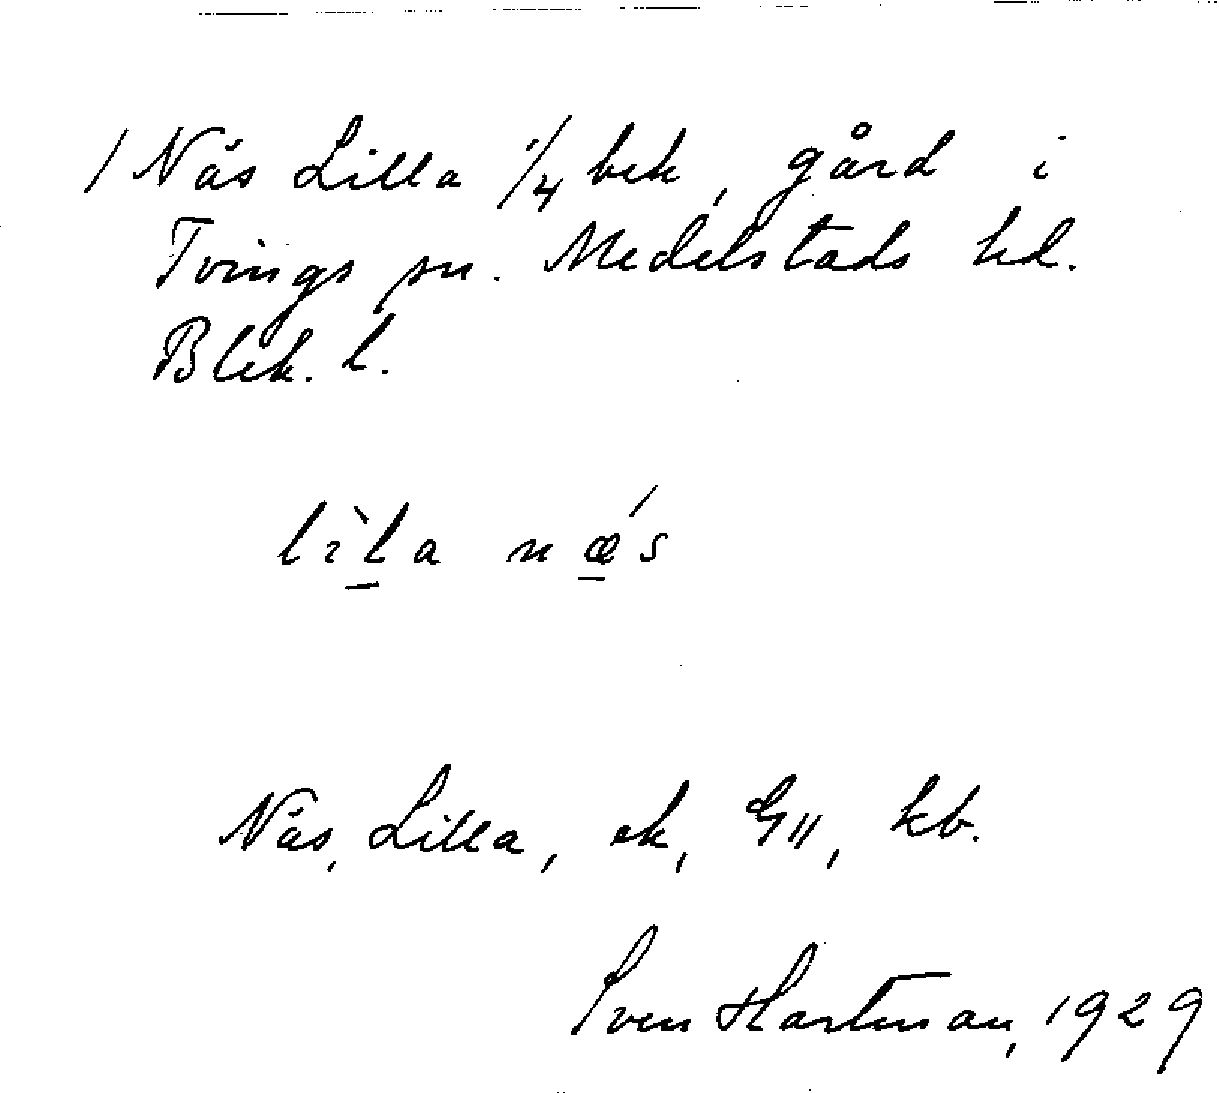 / Näs Lilla 1/4 bek, gård i
Tvings sn. Medelstads hd.
Blek. l.
lìḻa nǽ̱s
Näs, Lilla, ek, GII, kb.
Sven Hartman, 1929